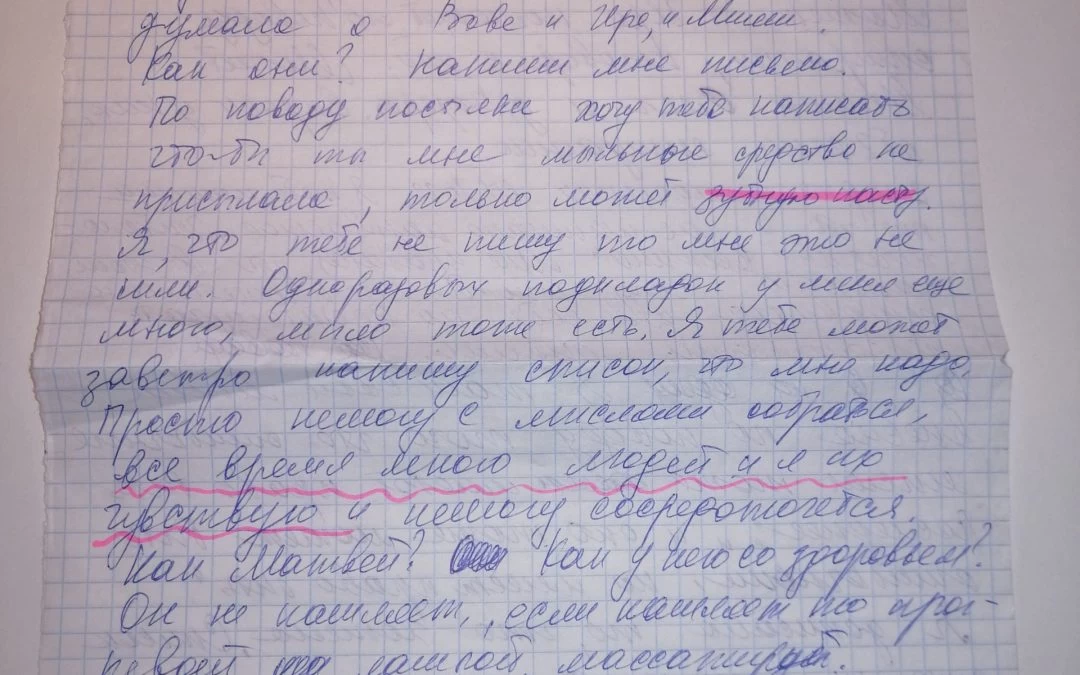 думала о Вове и Ире, и Миши.
Как они? Напиши мне письмо.
По поводу посылки хочу тебе написать
что-бы ты мне мыльные средство не
присылала, только может зубную пасту.
Я, что тебе не пишу то мне это не
шли. Одноразовых подкладок у меня еще
много, мыло тоже есть. Я тебе может
завтро напишу список, что мне надо.
Просто немогу с мыслями собраться,
все время много людей и я их
чувствую и немогу сосредоточется.
Как Матвей? Как у него со здоровьем?
Он не кашляет, если кашляет то прог-
ревай лампой, массажируй.